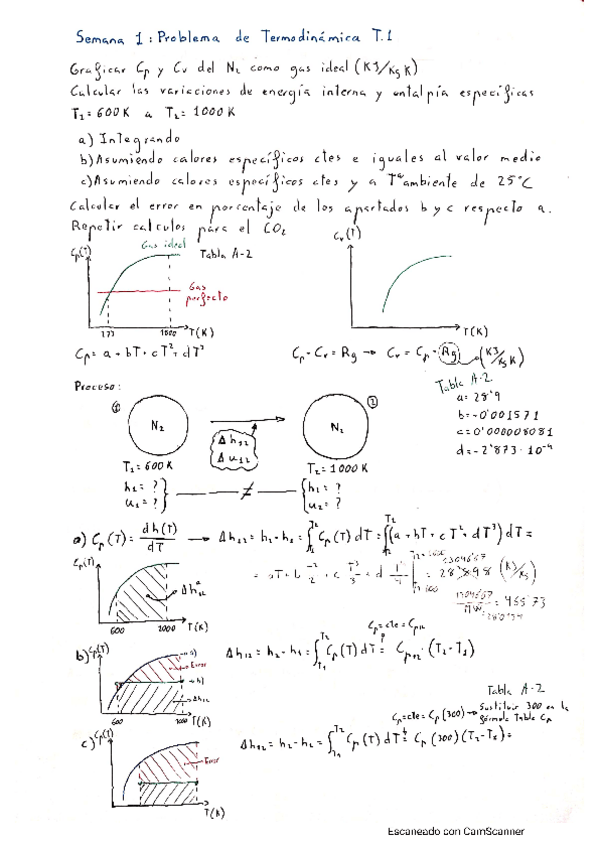 Semana 1: Problema de Termodinámica T.1
Graficar Cp y Cv del N₂ como gas ideal (KJ/Kg K)
Calcular las variaciones de energía interna y entalpía específicas
T₁=600K a T₂=1000K
a) Integrando
b) Asumiendo calores específicos ctes e iguales al valor medio
c) Asumiendo calores específicos ctes y a Tªambiente de 25°C
Calcular el error en porcentaje de los apartados b y c respecto a.
Repetir calculos para el CO₂
Cp(T) Gas ideal Tabla A-2 Cv(T)
Gas perfecto
T(K) T(K)
Cp= a+bT+cT²+dT³ Cp-Cv=Rg → Cv=Cp-Rg (KJ/Kg K)
Tabla A-2
a= 28'9
b=-0'001571
c=0'000008081
d=-2'873·10⁻⁹
Proceso:
① N₂ ② N₂
Δh₁₂
Δu₁₂
T₁=600K T₂=1000K
h₁=? ≠ h₂=?
u₁=? u₂=?
a) Cp(T)= dh(T)/dT → Δh₁₂= h₂-h₁= ∫ Cp(T)dT= ∫(a+bT+cT²+dT³)dT=
Cp(T) Δh₁₂
(KJ/Kg)
600 1000 T(K)
Cp=cte=Cp₁₂
b) Cp(T) Error Δh₁₂= h₂-h₁= ∫ Cp(T)dT= Cp₁₂ (T₂-T₁)
600 1000 T(K)
Tabla A-2
Cp=cte=Cp(300) → Sustituir 300 en la fórmula Tabla Cp
c) Cp(T) Error Δh₁₂= h₂-h₁= ∫ Cp(T)dT= Cp(300)(T₂-T₁)=
T(K)
Escaneado con CamScanner